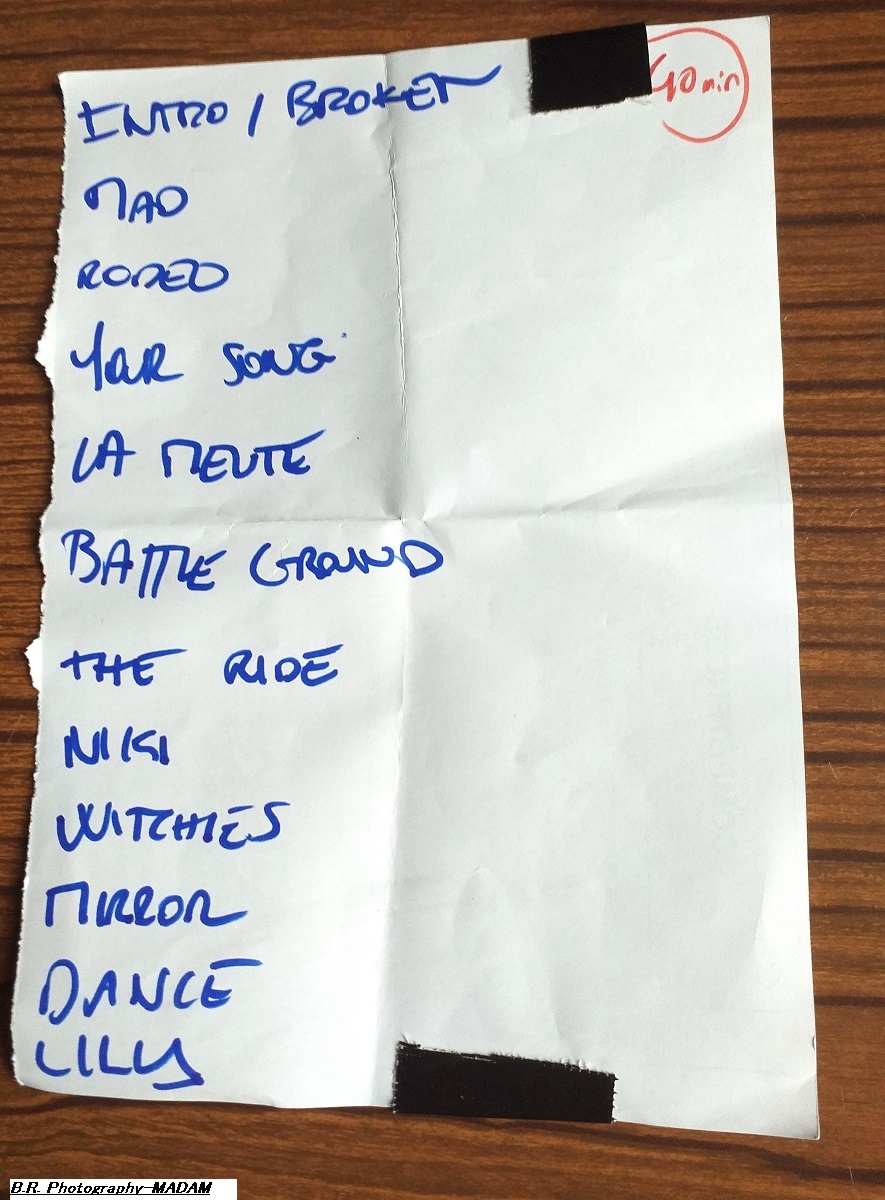 INTRO / BROKEN
40 min
MAD
RODEO
YOUR SONG
LA MEUTE
BATTLE GROUND
THE RIDE
NIKI
WITCHIES
MIRROR
DANCE
LILLY
B.R. Photography-MADAM